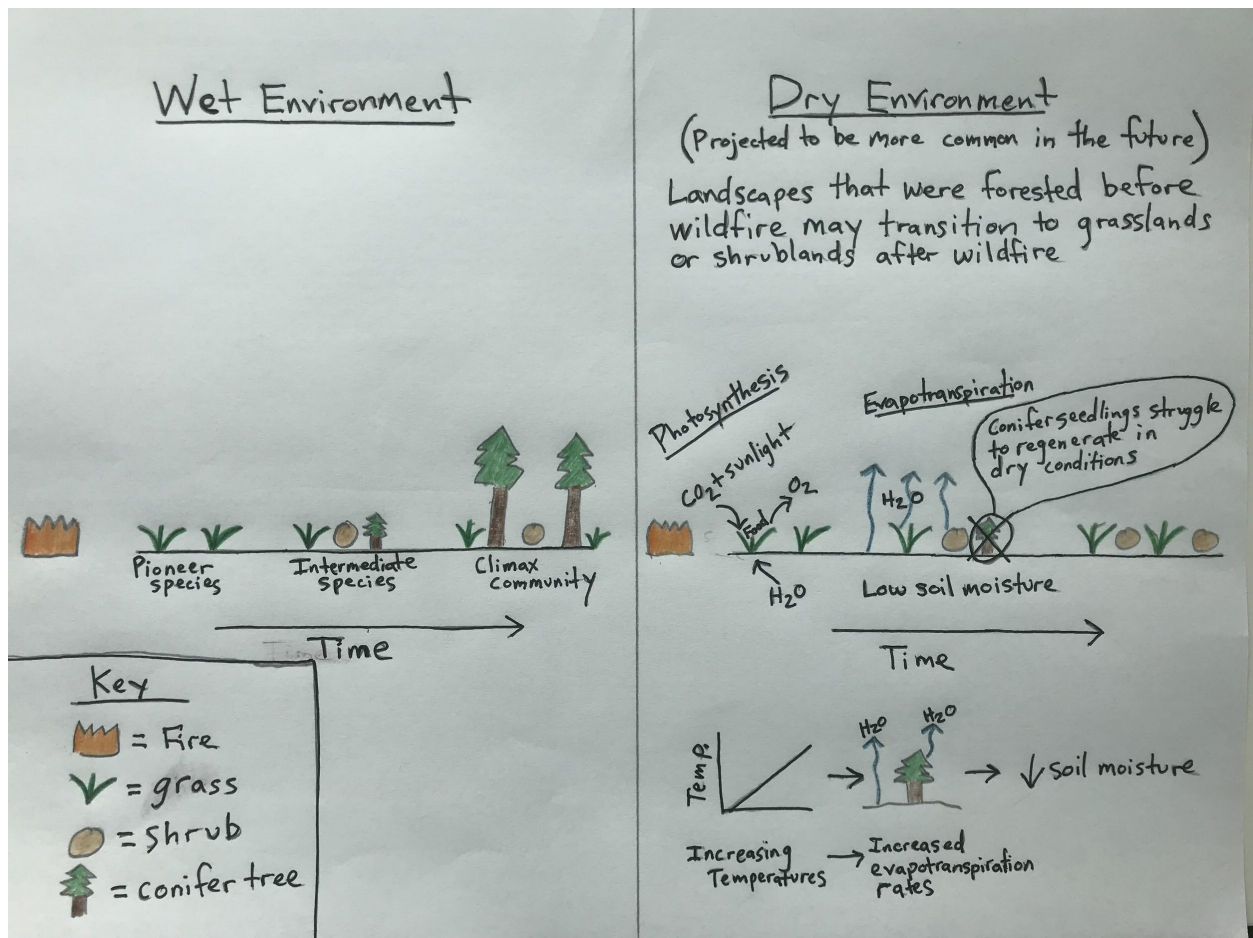 Wet Environment
Pioneer
species
Intermediate
species
Climax
community
Time
Key
= Fire
= grass
= shrub
= conifer tree
Dry Environment
(Projected to be more common in the future)
Landscapes that were forested before
wildfire may transition to grasslands
or shrublands after wildfire
Photosynthesis
CO₂ + sunlight
Food
O₂
H₂O
Evapotranspiration
H₂O
Conifer seedlings struggle
to regenerate in
dry conditions
Low soil moisture
Time
Temp.
H₂O
H₂O
→ ↓ soil moisture
Increasing
Temperatures
→ Increased
evapotranspiration
rates